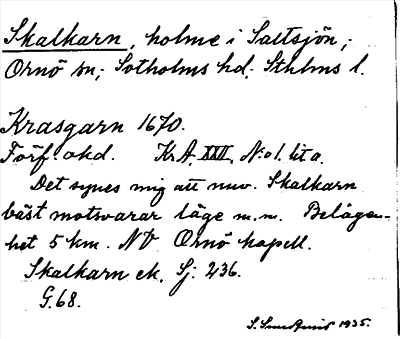 Skalkarn, holme i Saltsjön,
Ornö sn; Sotholms hd; Sthlms l.
Krasgarn 1670.
Förf. okd. Kr.A. XXII, N:o 1. lit a.
Det synes mig att nuv. Skalkarn
bäst motsvarar läge m.m. Belägen-
het 5 km. NV Ornö kapell.
Skalkarn ek. Sj. 236.
G.68.
S. 1935.